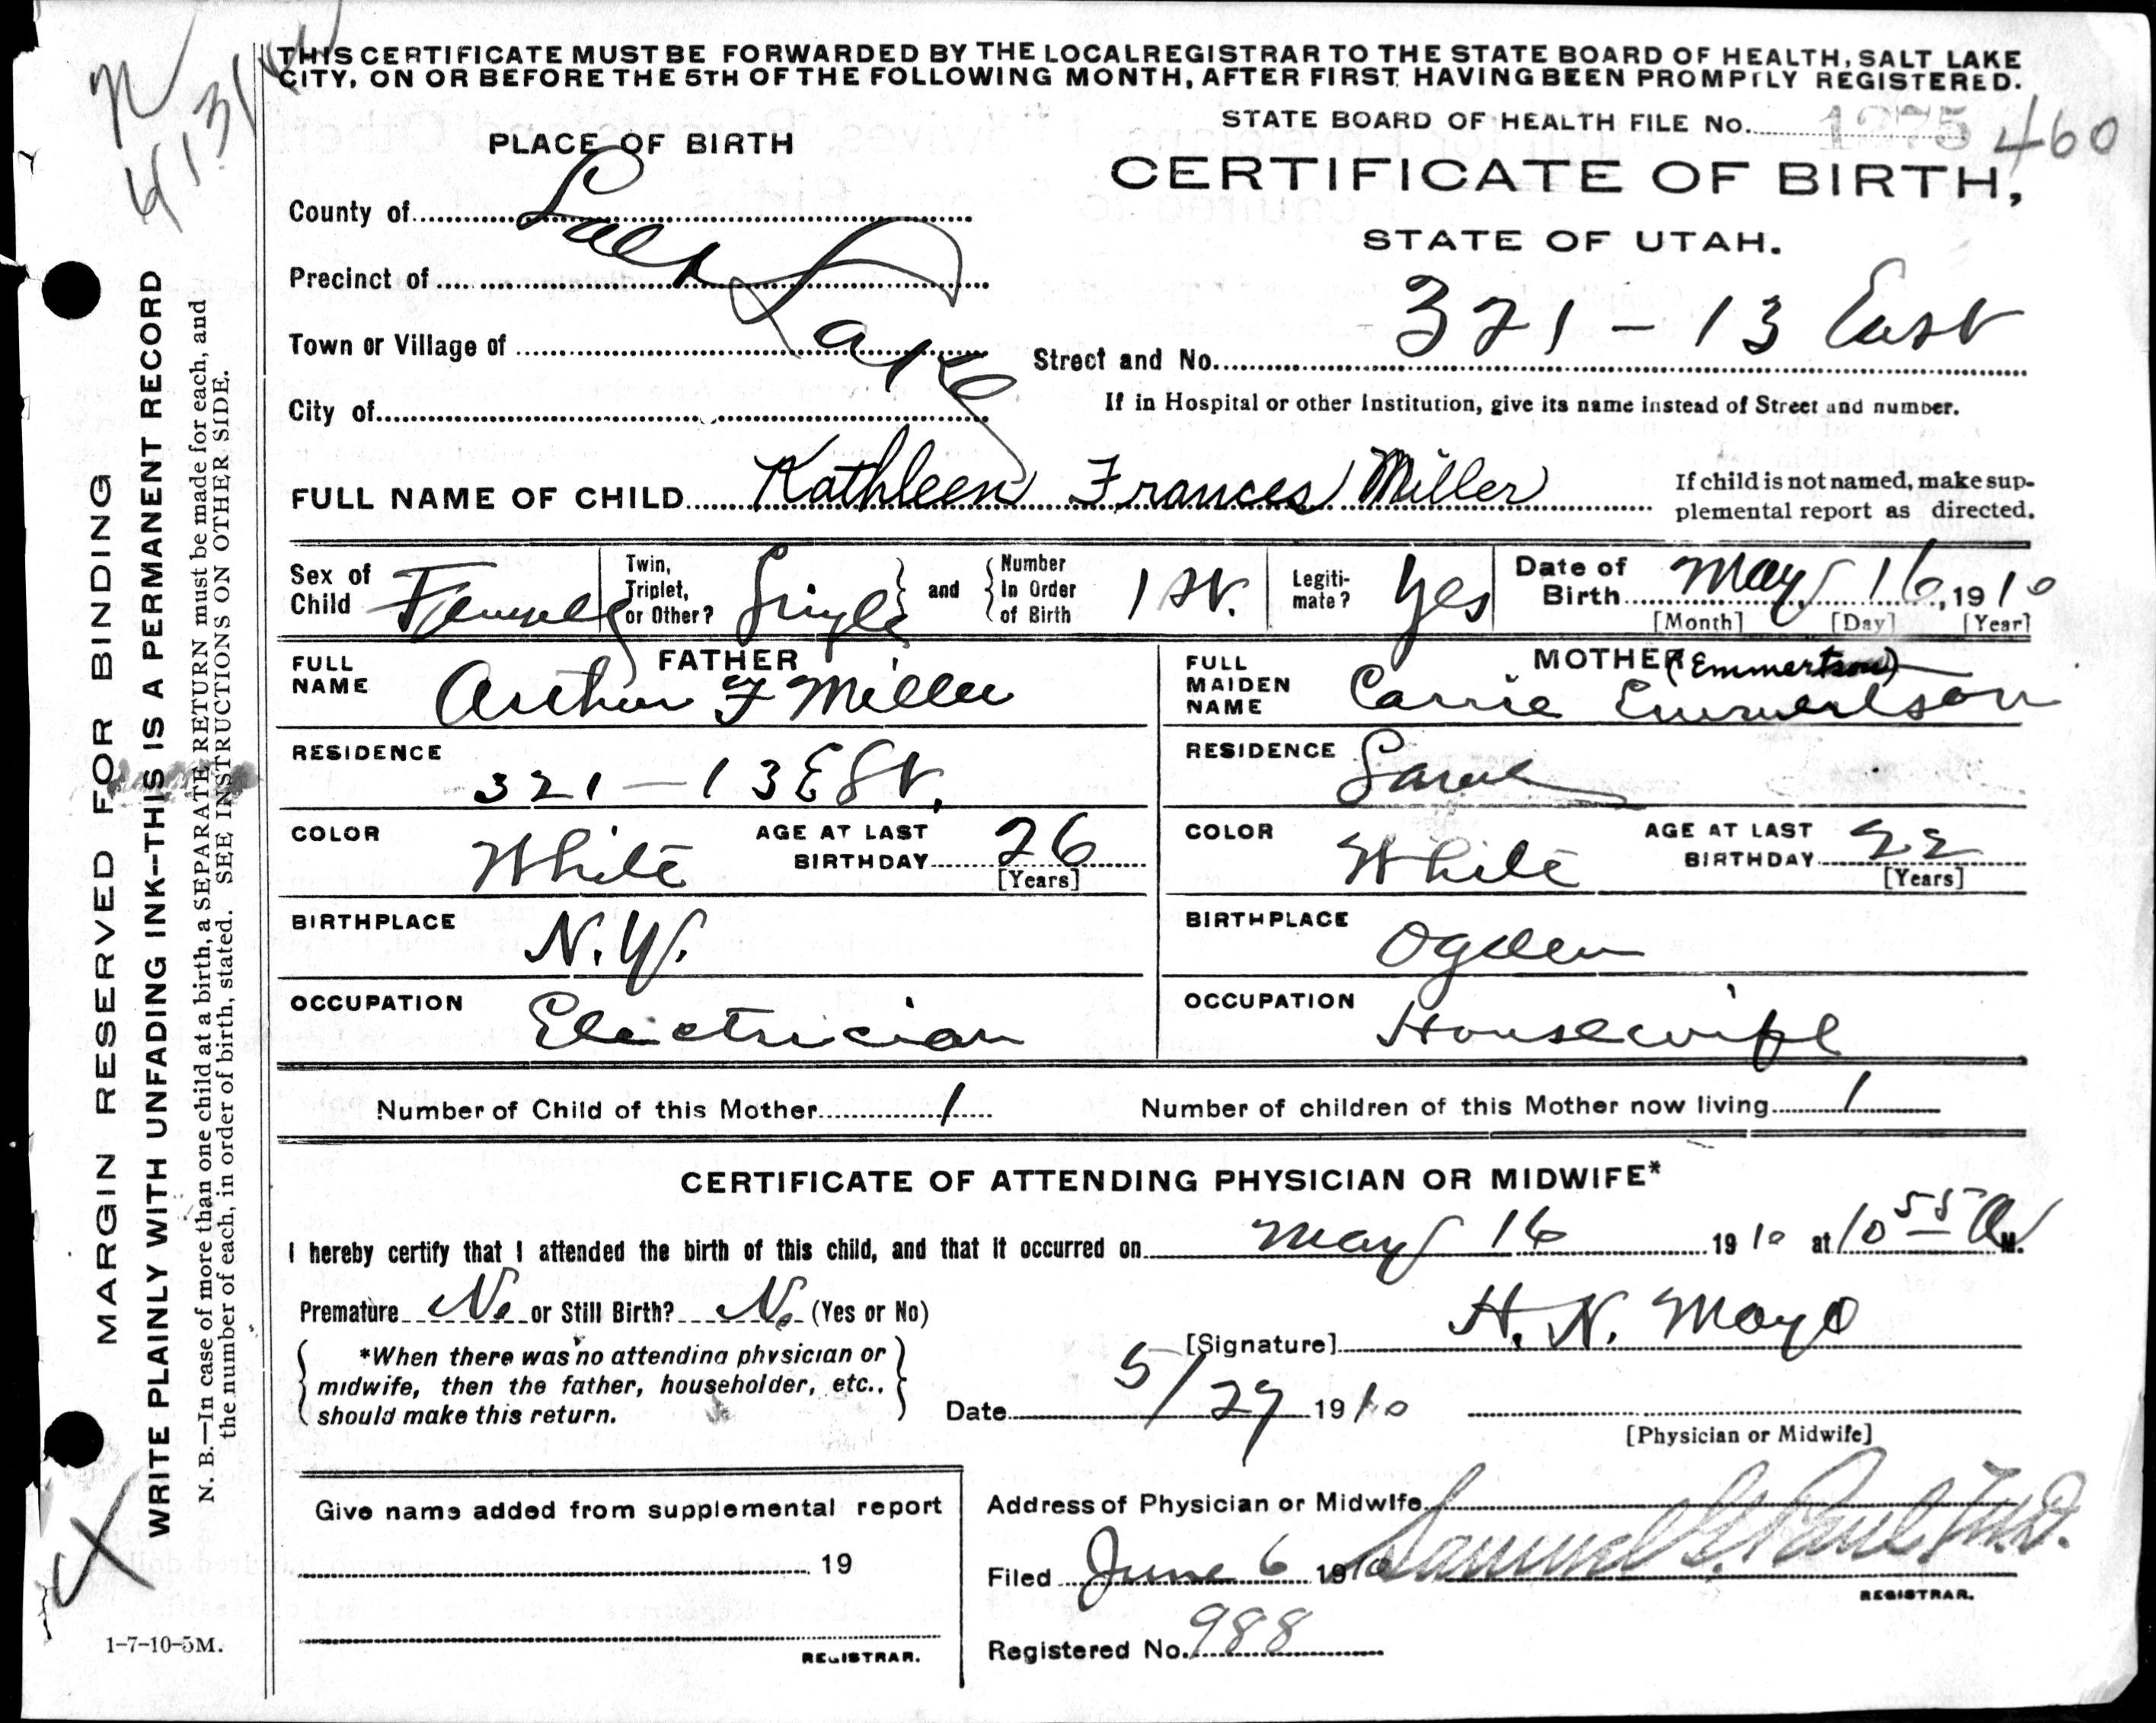 THIS CERTIFICATE MUST BE FORWARDED BY THE LOCAL REGISTRAR TO THE STATE BOARD OF HEALTH, SALT LAKE
CITY, ON OR BEFORE THE 5TH OF THE FOLLOWING MONTH, AFTER FIRST HAVING BEEN PROMPTLY REGISTERED.
STATE BOARD OF HEALTH FILE No. 1275 460
PLACE OF BIRTH
CERTIFICATE OF BIRTH,
STATE OF UTAH.
County of
Precinct of
Town or Village of
City of
Salt Lake
Street and No. 321 - 13 East
If in Hospital or other Institution, give its name instead of Street and number.
FULL NAME OF CHILD Kathleen Frances Miller
If child is not named, make sup-
plemental report as directed.
Sex of Child Female
Twin, Triplet, or Other? Single and Number In Order of Birth 1st.
Legiti-mate? Yes
Date of Birth May 16, 1910
[Month] [Day] [Year]
FATHER
FULL NAME Arthur F Miller
RESIDENCE 321 - 13 E St.
COLOR White
AGE AT LAST BIRTHDAY 26
[Years]
BIRTHPLACE N.Y.
OCCUPATION Electrician
MOTHER (Emmertson)
FULL MAIDEN NAME Carrie Emmertson
RESIDENCE Same
COLOR White
AGE AT LAST BIRTHDAY 22
[Years]
BIRTHPLACE Ogden
OCCUPATION Housewife
Number of Child of this Mother 1
Number of children of this Mother now living 1
CERTIFICATE OF ATTENDING PHYSICIAN OR MIDWIFE*
I hereby certify that I attended the birth of this child, and that it occurred on May 16 1910 at 10 55 A M.
Premature No or Still Birth? No (Yes or No)
*When there was no attending physician or
midwife, then the father, householder, etc.,
should make this return.
[Signature] H. N. Mayo
Date 5/29 1910
[Physician or Midwife]
Give name added from supplemental report
19
REGISTRAR.
Address of Physician or Midwife
Filed June 6 1910 Samuel G. Paul, M.D.
REGISTRAR.
Registered No. 988
MARGIN RESERVED FOR BINDING
WRITE PLAINLY WITH UNFADING INK--THIS IS A PERMANENT RECORD
N. B.—In case of more than one child at a birth, a SEPARATE RETURN must be made for each, and
the number of each, in order of birth, stated. SEE INSTRUCTIONS ON OTHER SIDE.
1-7-10-5M.